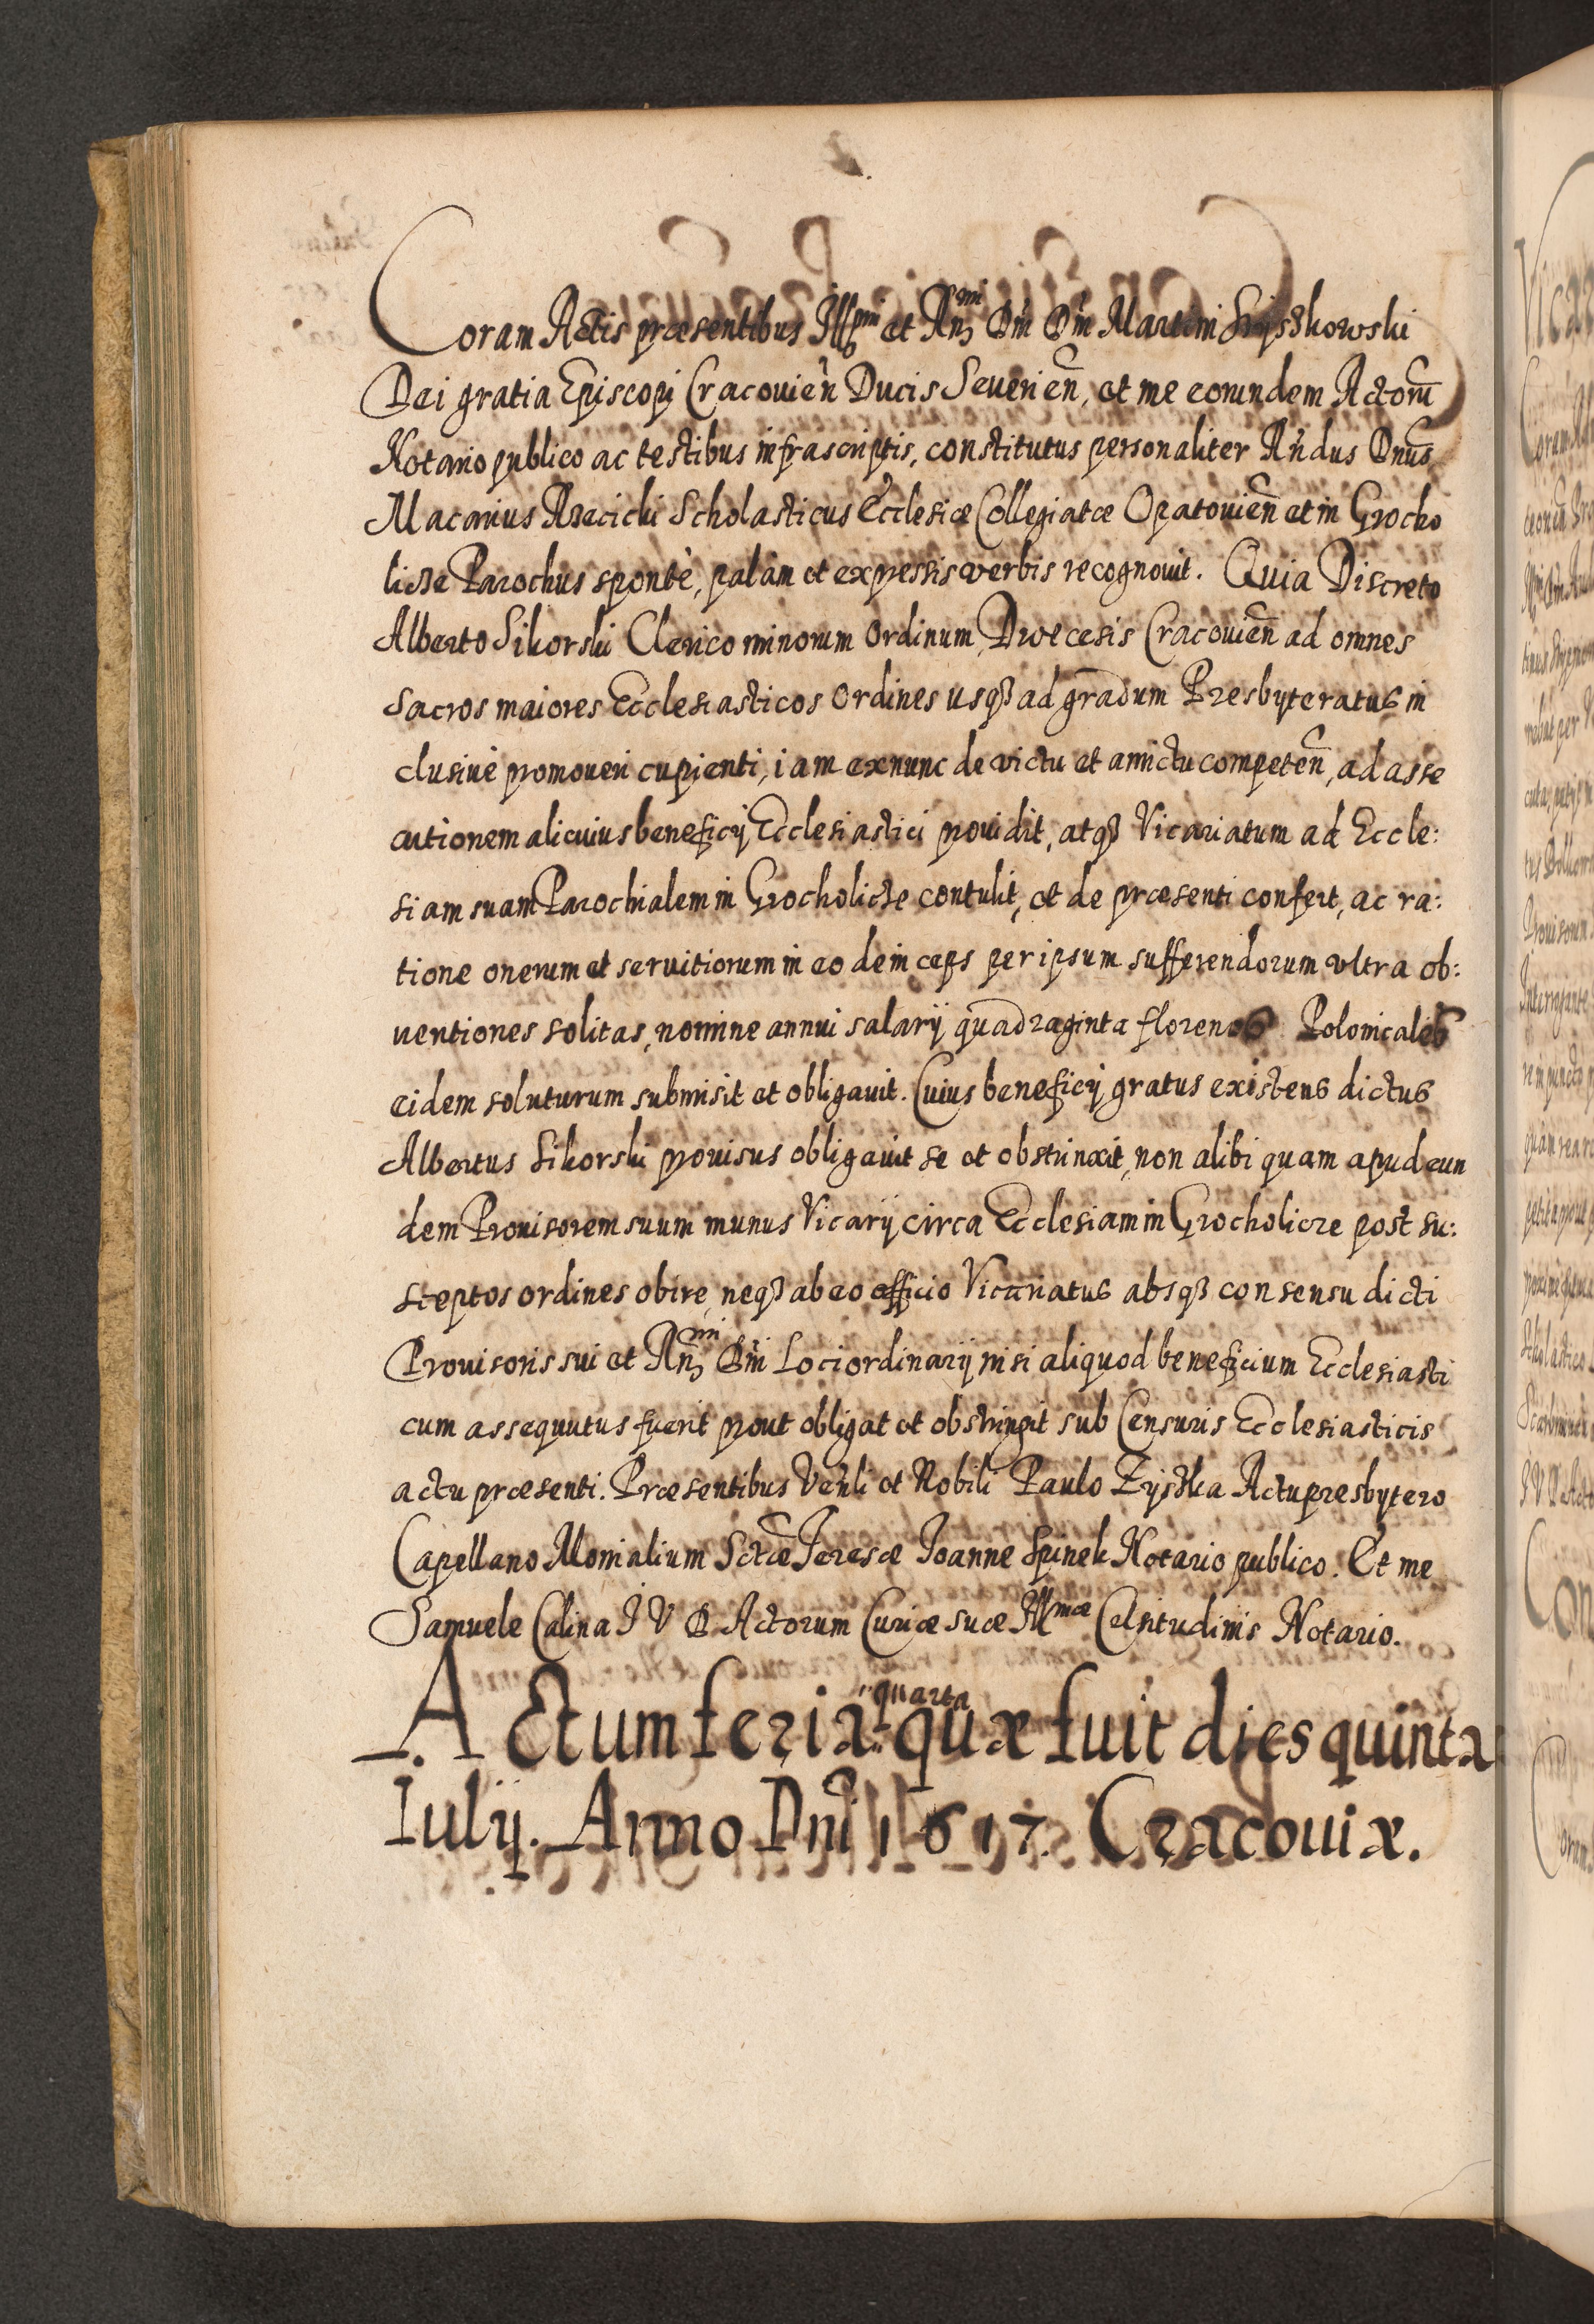 Coram Actis præsentibus Illmi et Rmi Dni Dni Martini Szyszkowski
Dei gratia Episcopi Cracovien Ducis Severien, et me eorundem Actorũ
Notario publico ac testibus infrascriptis, constitutus personaliter Rñdus Dnus
Macarius Rzecicki Scholasticus Ecclesiæ Collegiatæ Opatouien et in Grocho
licze Parochus spontè, palam et expressis verbis recognouit. Quia Discreto
Alberto Sikorski Clerico minorum Ordinum Diœcesis Cracouien ad omnes
sacros maiores Ecclesiasticos Ordines usq; ad gradum Presbyteratus in
clusiuè promoueri cupienti, iam exnunc de victu et amictu competen, ad asse
cutionem alicuius beneficij Ecclesiastici prouidit, atq; Vicariatum ad Eccle:
siam suam Parochialem in Grocholicze contulit, et de præsenti confert, ac ra:
tione onerum et seruitiorum in eo deinceps per ipsum sufferendorum vltra ob:
uentiones solitas, nomine annui salarij quadraginta florenos Polonicales
eidem soluturum submisit et obligauit. Cuius beneficij gratus existens dictus
Albertus Sikorski prouisus obligauit se et obstrinxit, non alibi quam apud eun
dem Prouisorem suum munus Vicarij circa Ecclesiam in Grocholicze post su:
sceptos ordines obire, neq; ab eo officio Vicariatus absq; consensu dicti
Prouisoris sui et Rmi Dni Loci ordinarij nisi aliquod beneficium Ecclesiasti
cum assequutus fuerit prout obligat et obstringit sub Censuris Ecclesiasticis
actu præsenti. Præsentibus Venli et Nobili Paulo Zyszka Actu presbytero
Capellano Monialium Sctæ Teresæ Joanne Spinek Notario publico. Et me
Samuele Calina J V D Actorum Curiæ suæ Illmæ Celsitudinis Notario.
Actum feria quarta quæ fuit dies quinta
Iulij. Anno Dni 1617. Cracouiæ.